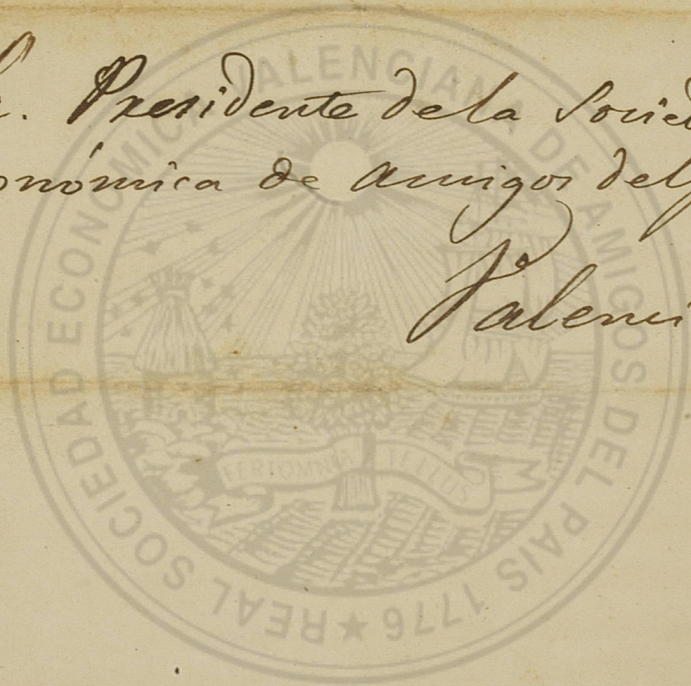 Presidente de la Socied
onómica de Amigos del
Valenci
REAL SOCIEDAD ECONOMICA VALENCIANA DE AMIGOS DEL PAIS 1776 ★
FERT OMNIA TELLUS